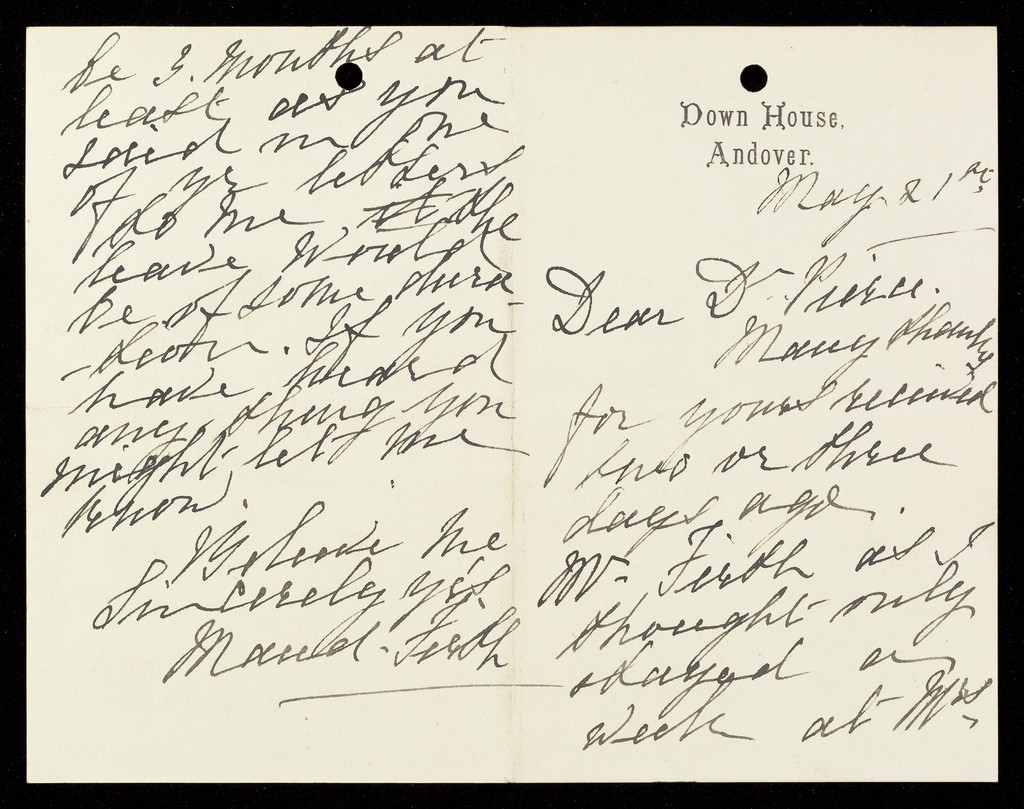 Down House,
Andover.
May 21st
Dear Dr. Pierce.
Many thanks
for yours received
two or three
days ago.
Mr. Firth as I
thought only
stayed a
week at Mrs
be 3. months at
least as you
said in one
of yr letters
to me the
leave would
be of some dura
-tion. If you
have heard
any thing you
might let me
know.
Believe me
Sincerely yrs.
Maud. Firth